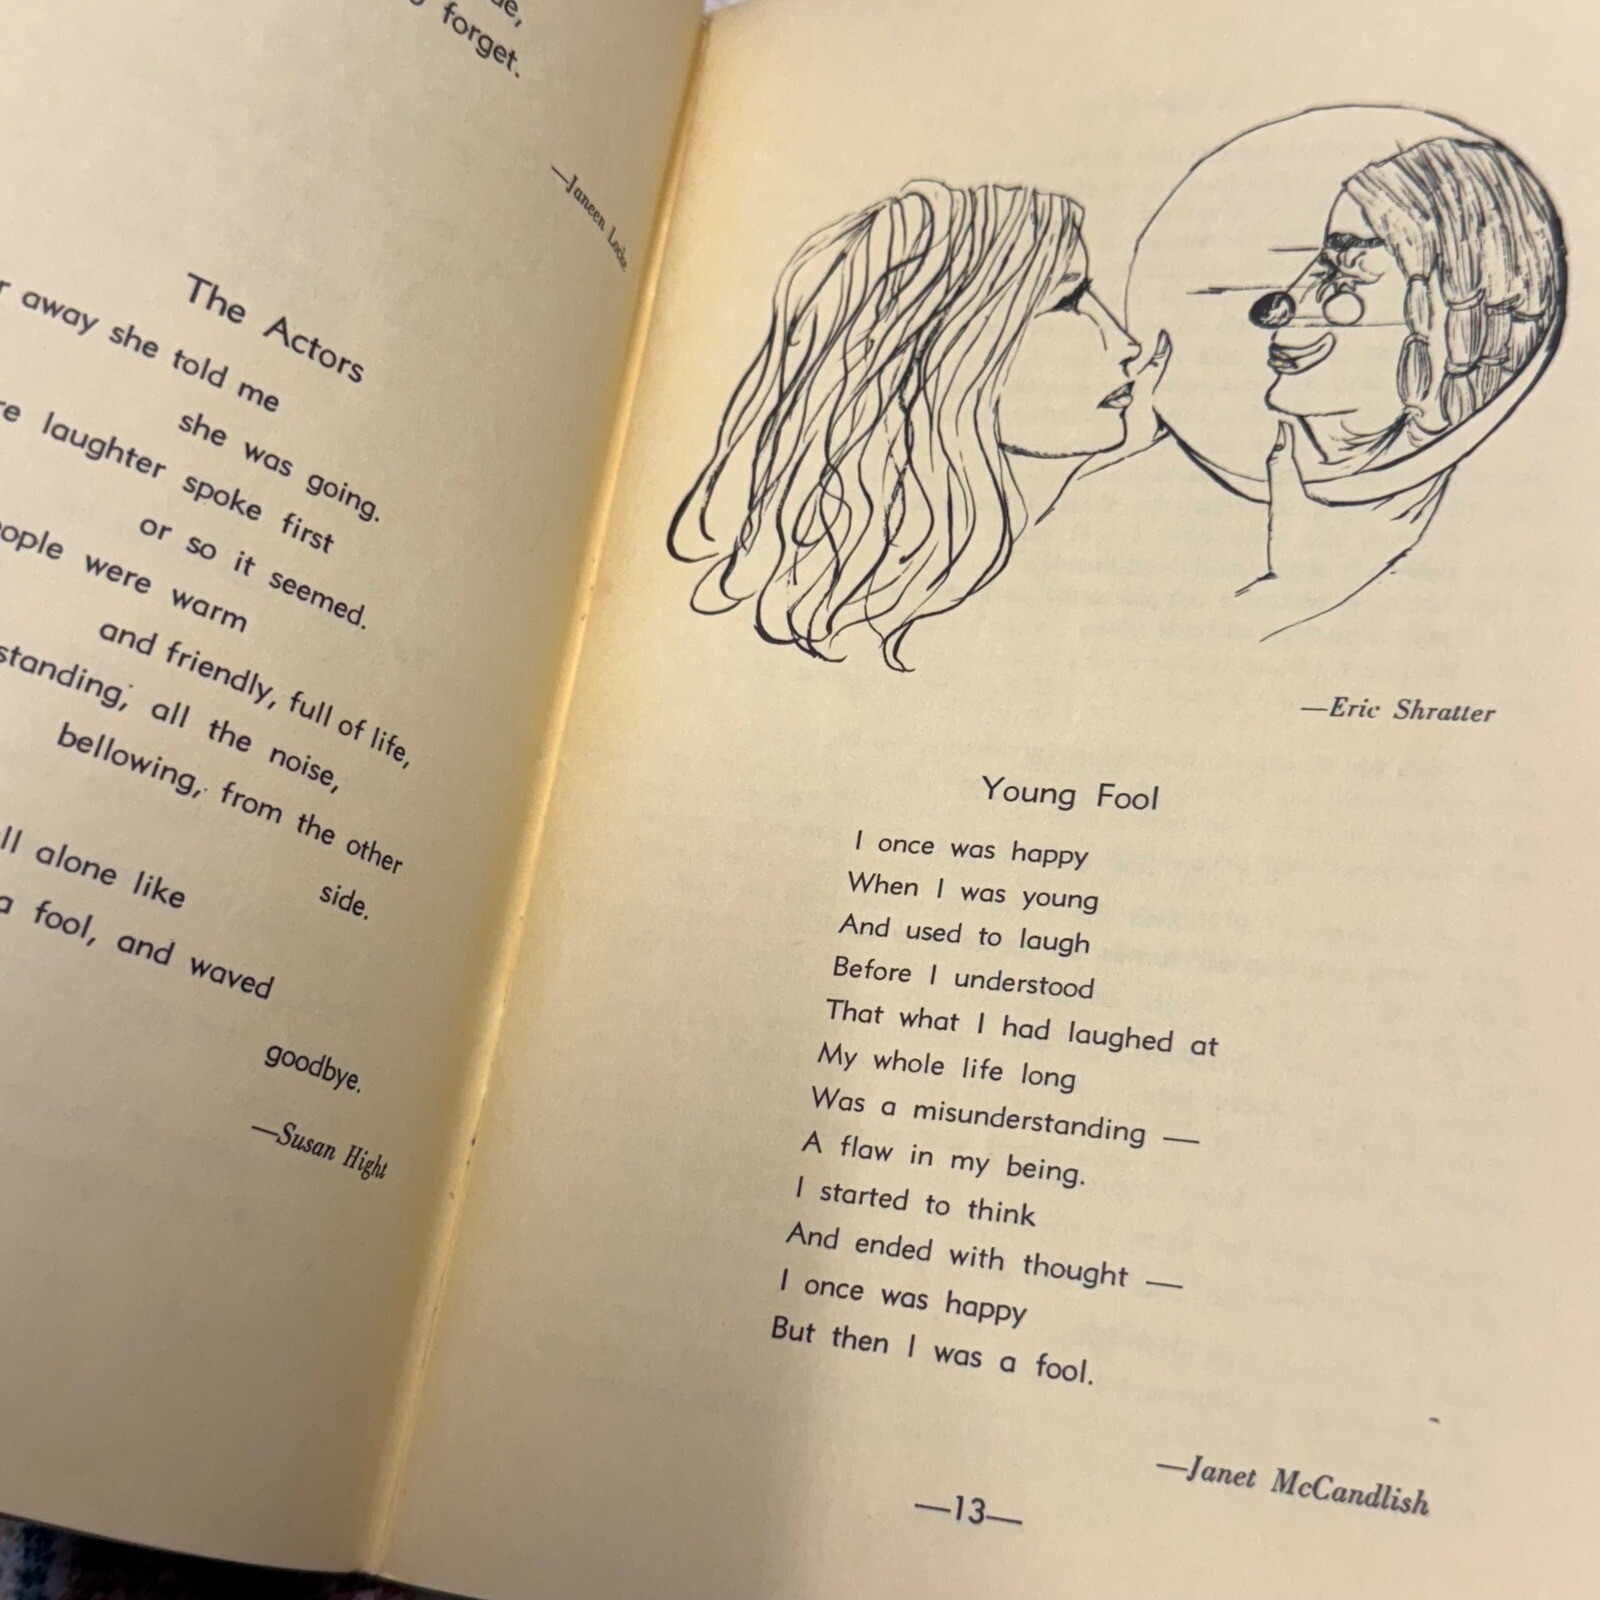 forget.
—Janeen Locke
The Actors
away she told me
she was going.
laughter spoke first
or so it seemed.
were warm
and friendly, full of life,
all the noise,
bellowing, from the other
side.
alone like
a fool, and waved
goodbye.
—Susan Hight
—Eric Shratter
Young Fool
I once was happy
When I was young
And used to laugh
Before I understood
That what I had laughed at
My whole life long
Was a misunderstanding —
A flaw in my being.
I started to think
And ended with thought —
I once was happy
But then I was a fool.
—Janet McCandlish
—13—